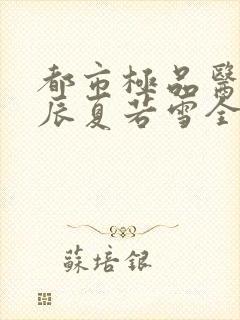 都市極品醫
辰夏若雪全
蘇培銀